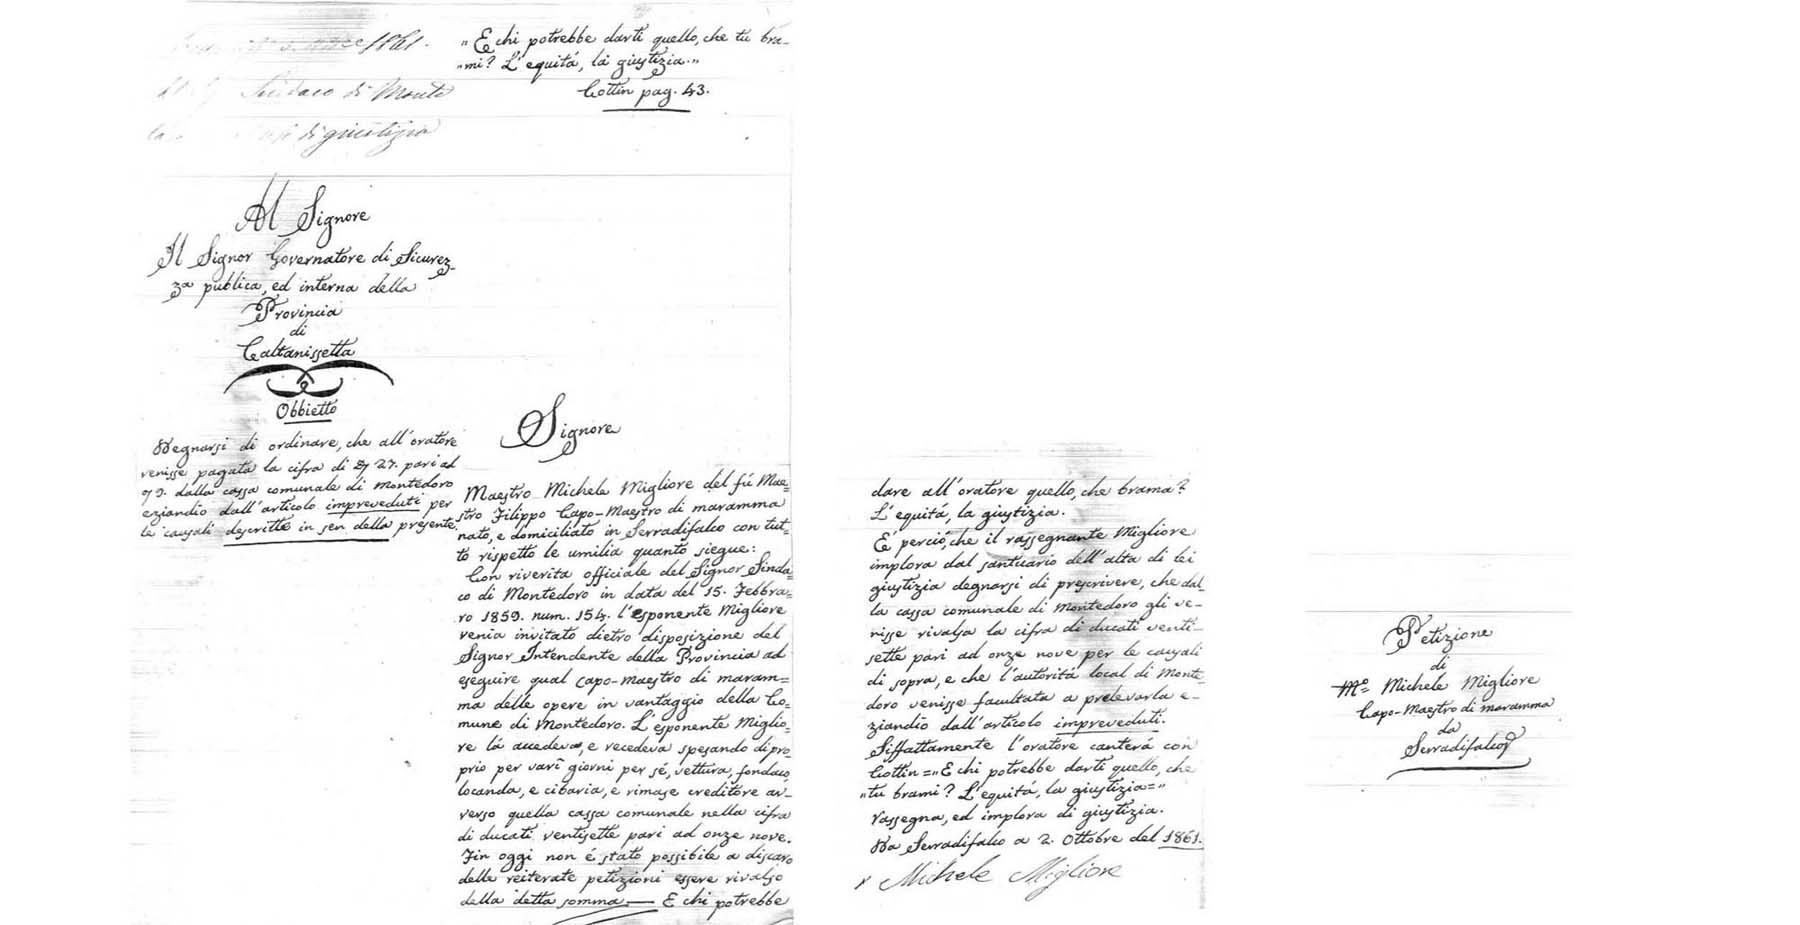 1861.
Sindaco di Monte
di giustizia
" E chi potrebbe darti quello, che tu bra-
"mi? L'equitá, lá giustizia."
Cottin pag. 43.
Al Signore
Il Signor Governatore di Sicurez-
za publica, ed interna della
Provincia
di
Caltanissetta
Obbietto
Degnarsi di ordinare, che all'oratore
venisse pagata la cifra di 27. pari ad
9. dalla cassa comunale di Montedoro
eziandio dall'articolo impreveduti per
le causali descritte in sen della presente.
Signore
Maestro Michele Migliore del fú Mae=
stro Filippo Capo-Maestro di maramma
nato, e domiciliato in Serradifalco con tut=
to rispetto le umilia quanto siegue:
Con riverita officiale del Signor Sinda=
co di Montedoro in data del 15. Febbra=
ro 1859. num. 154. l'esponente Migliore
venia invitato dietro disposizione del
Signor Intendente della Provincia ad
eseguire qual capo-maestro di maram=
ma delle opere in vantaggio della Co=
mune di Montedoro. L'esponente Miglio=
re lá accedeva, e recedeva spesando di pro
prio per varî giorni per sé, vettura, fondaco,
locanda, e cibaria, e rimase creditore av-
verso quella cassa comunale nella cifra
di ducati ventisette pari ad onze nove.
Fin oggi non é stato possibile a discaro
delle reiterate petizioni essere rivalso
della detta somma — E chi potrebbe
dare all'oratore quello, che brama?
L'equitá, la giustizia.
E' perció, che il rassegnante Migliore
implora dal santuario dell'alta di lei
giustizia degnarsi di prescrivere, che dal
la cassa comunale di Montedoro gli ve-
nisse rivalsa la cifra di ducati venti-
sette pari ad onze nove per le causali
di sopra, e che l'autoritá local di Monte
doro venisse facultata a prelevarla e-
ziandio dall'articolo impreveduti.
Siffattamente l'oratore canterá con
Cottin =" E chi potrebbe darti quello, che
"tu brami? L'equitá, la giustizia="
rassegna, ed implora di giustizia.
Da Serradifalco a 2. Ottobre del 1861.
Michele Migliore
Petizione
di
Mo Michele Migliore
Capo-Maestro di maramma
da
Serradifalco